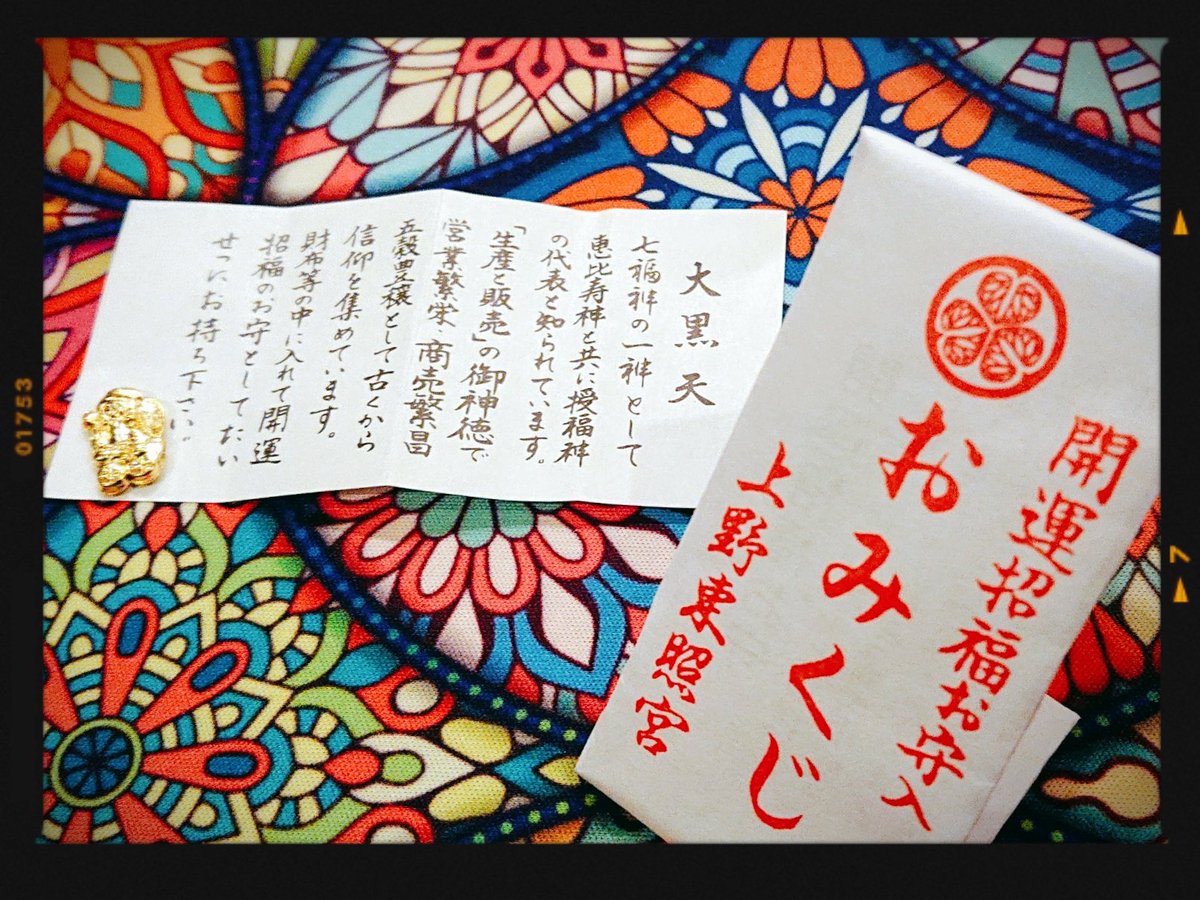 大黒天
七福神の一神として
恵比寿神と共に授福神
の代表と知られています。
「生産と販売」の御神徳で
営業繁栄 商売繁昌
五穀豊穣として古くから
信仰を集めています。
財布等の中に入れて開運
招福のお守としてたい
せつにお持ち下さい。
開運招福お守入
おみくじ
上野東照宮
01753
7